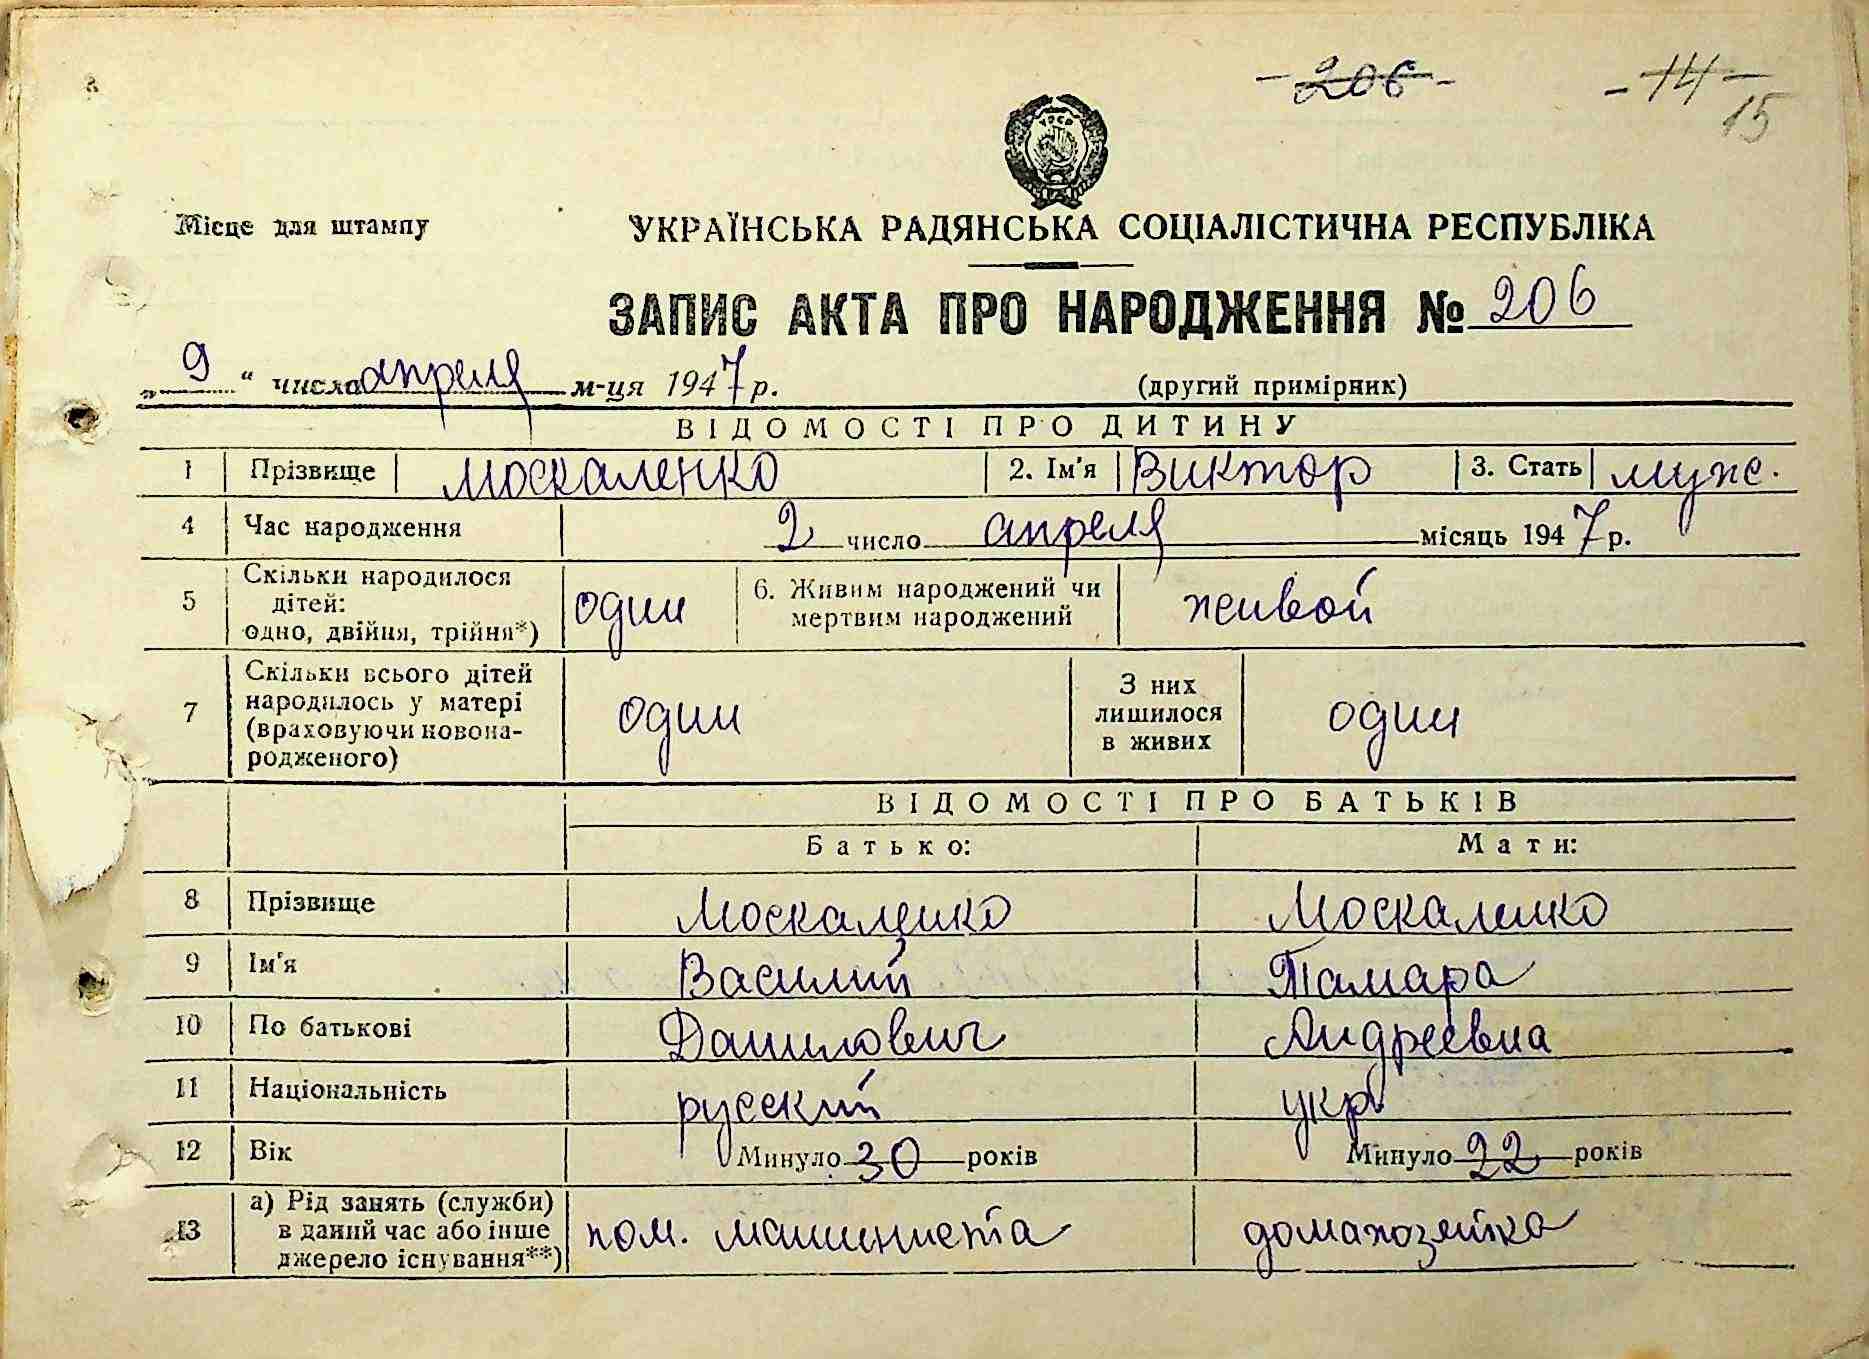 - 206 -
- 14 -
15
УРСР
Місце для штампу
УКРАЇНСЬКА РАДЯНСЬКА СОЦІАЛІСТИЧНА РЕСПУБЛІКА
ЗАПИС АКТА ПРО НАРОДЖЕННЯ № 206
„ 9 “ числа апреля м-ця 1947 р. (другий примірник)
ВІДОМОСТІ ПРО ДИТИНУ
1 Прізвище Москаленко 2. Ім'я Виктор 3. Стать муж.
4 Час народження 2 число апреля місяць 1947 р.
5 Скільки народилося дітей: одно, двійня, трійня*) один 6. Живим народжений чи мертвим народжений живой
7 Скільки всього дітей народилось у матері (враховуючи новона-родженого) один З них лишилося в живих один
ВІДОМОСТІ ПРО БАТЬКІВ
Батько: Мати:
8 Прізвище Москаленко Москаленко
9 Ім'я Василий Тамара
10 По батькові Данилович Андреевна
11 Національність русский укр
12 Вік Минуло 30 років Минуло 22 років
13 а) Рід занять (служби) в даний час або інше джерело існування**) пом. машиниста домахозяйка